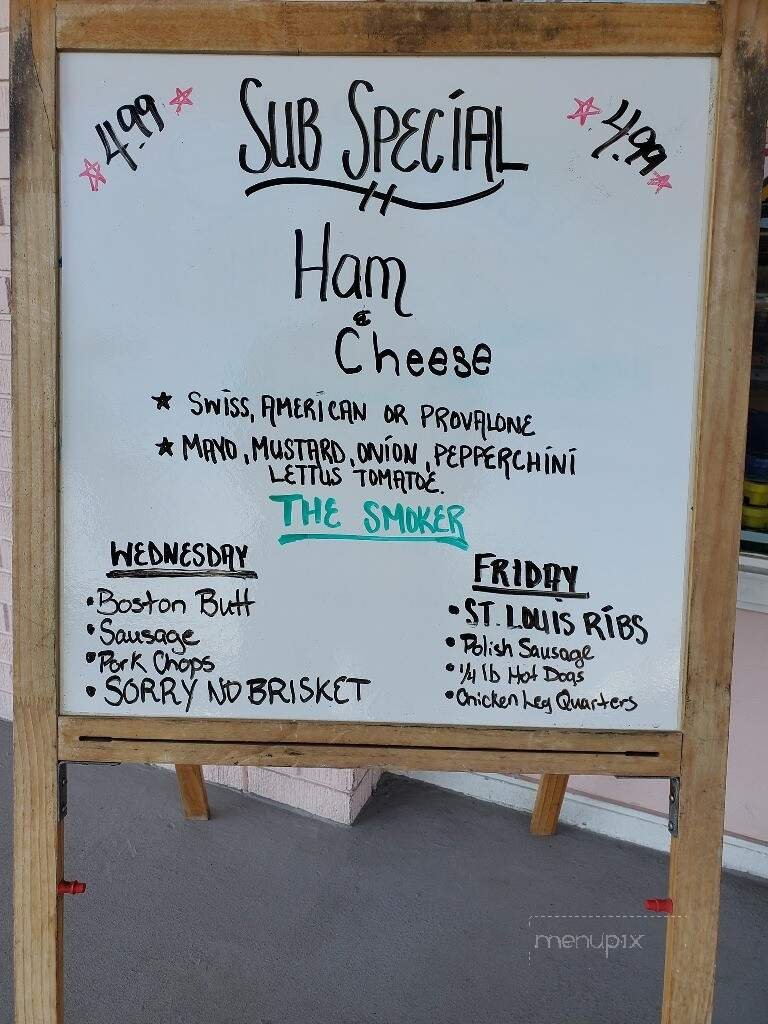 4.99 SUB SPECIAL 4.99
Ham
&
Cheese
★ SWISS, AMERICAN OR PROVALONE
★ MAYO, MUSTARD, ONION, PEPPERCHINI
LETTUS TOMATOE.
THE SMOKER
WEDNESDAY
• Boston Butt
• Sausage
• Pork Chops
• SORRY NO BRISKET
FRIDAY
• ST. LOUIS RIBS
• Polish Sausage
• 1/4 lb Hot Dogs
• Chicken Leg Quarters
menupix